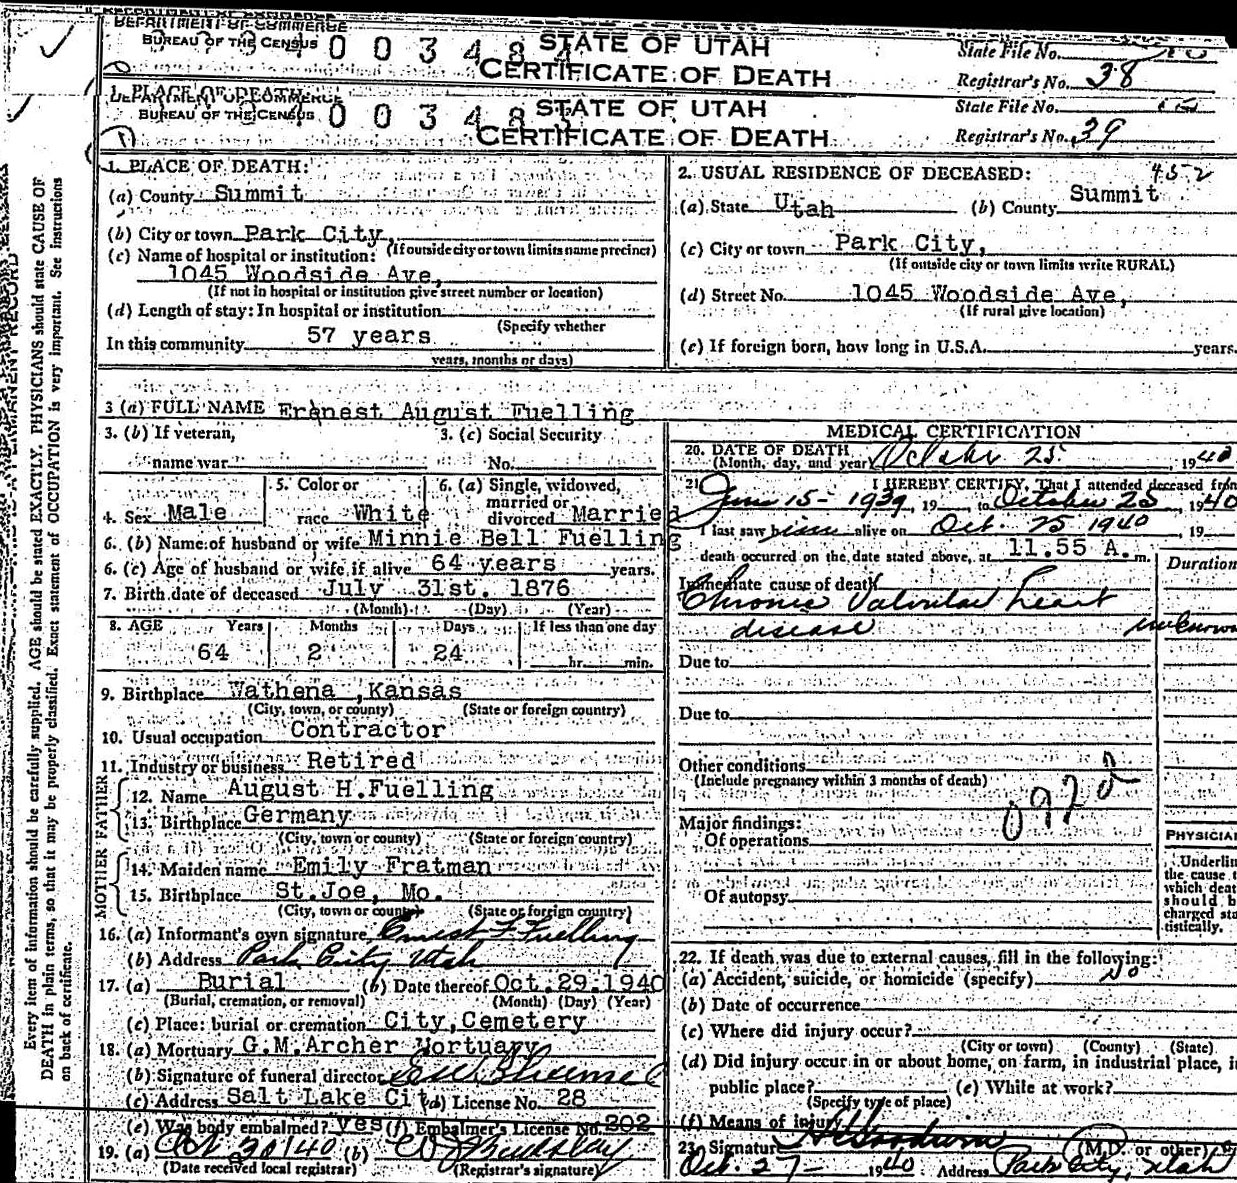 DEPARTMENT OF COMMERCE
BUREAU OF THE CENSUS
0 0 3 4 8
STATE OF UTAH
CERTIFICATE OF DEATH
State File No.
Registrar's No. 38
1. PLACE OF DEATH
DEPARTMENT OF COMMERCE
BUREAU OF THE CENSUS
0 0 3 4 8
STATE OF UTAH
CERTIFICATE OF DEATH
State File No.
Registrar's No. 39
1. PLACE OF DEATH:
(a) County Summit
(b) City or town Park City,
(If outside city or town limits name precinct)
(c) Name of hospital or institution:
1045 Woodside Ave,
(If not in hospital or institution give street number or location)
(d) Length of stay: In hospital or institution
(Specify whether
In this community 57 years
years, months or days)
2. USUAL RESIDENCE OF DECEASED: 452
(a) State Utah (b) County Summit
(c) City or town Park City,
(If outside city or town limits write RURAL)
(d) Street No. 1045 Woodside Ave,
(If rural give location)
(e) If foreign born, how long in U.S.A. years.
3 (a) FULL NAME Ernest August Fuelling
3. (b) If veteran,
name war
3. (c) Social Security
No.
4. Sex Male
5. Color or
race White
6. (a) Single, widowed,
married or
divorced Married
6. (b) Name of husband or wife Minnie Bell Fuelling
6. (c) Age of husband or wife, if alive 64 years years.
7. Birth date of deceased July 31st. 1876
(Month) (Day) (Year)
8. AGE Years Months Days If less than one day
64 2 24 hr. min.
9. Birthplace Wathena ,Kansas
(City, town, or county) (State or foreign country)
10. Usual occupation Contractor
11. Industry or business Retired
FATHER
12. Name August H.Fuelling
13. Birthplace Germany
(City, town or county) (State or foreign country)
MOTHER
14. Maiden name Emily Fratman
15. Birthplace St.Joe, Mo.
(City, town or county) (State or foreign country)
16. (a) Informant's own signature Ernest F. Fuelling
(b) Address Park City Utah
17. (a) Burial (b) Date thereof Oct.29.1940
(Burial, cremation, or removal) (Month) (Day) (Year)
(c) Place: burial or cremation City,Cemetery
18. (a) Mortuary G.M.Archer Mortuary
(b) Signature of funeral director
(c) Address Salt Lake City (d) License No. 28
(e) Was body embalmed? yes (f) Embalmer's License No. 202
19. (a) Oct 30/40 (b)
(Date received local registrar) (Registrar's signature)
MEDICAL CERTIFICATION
20. DATE OF DEATH
(Month, day, and year) October 25 , 1940
21. I HEREBY CERTIFY, That I attended deceased from
June 15- 1939, 19 to October 25, 1940
I last saw him alive on Oct. 25 1940, 19
death occurred on the date stated above, at 11.55 A. m.
Duration
Immediate cause of death
Chronic Valvular heart
disease unknown
Due to
Due to
Other conditions
(Include pregnancy within 3 months of death)
Major findings:
Of operations
Of autopsy
PHYSICIAN
Underline
the cause t
which deat
should b
charged sta
tistically.
22. If death was due to external causes, fill in the following:
(a) Accident, suicide, or homicide (specify) No
(b) Date of occurrence
(c) Where did injury occur?
(City or town) (County) (State)
(d) Did injury occur in or about home, on farm, in industrial place, i
public place? (e) While at work?
(Specify type of place)
(f) Means of injury
23. Signature (M.D. or other)
Oct. 27- 1940 Address Park City, Utah
Every item of information should be carefully supplied. AGE should be stated EXACTLY. PHYSICIANS should state CAUSE OF
DEATH in plain terms, so that it may be properly classified. Exact statement of OCCUPATION is very important. See instructions
on back of certificate.